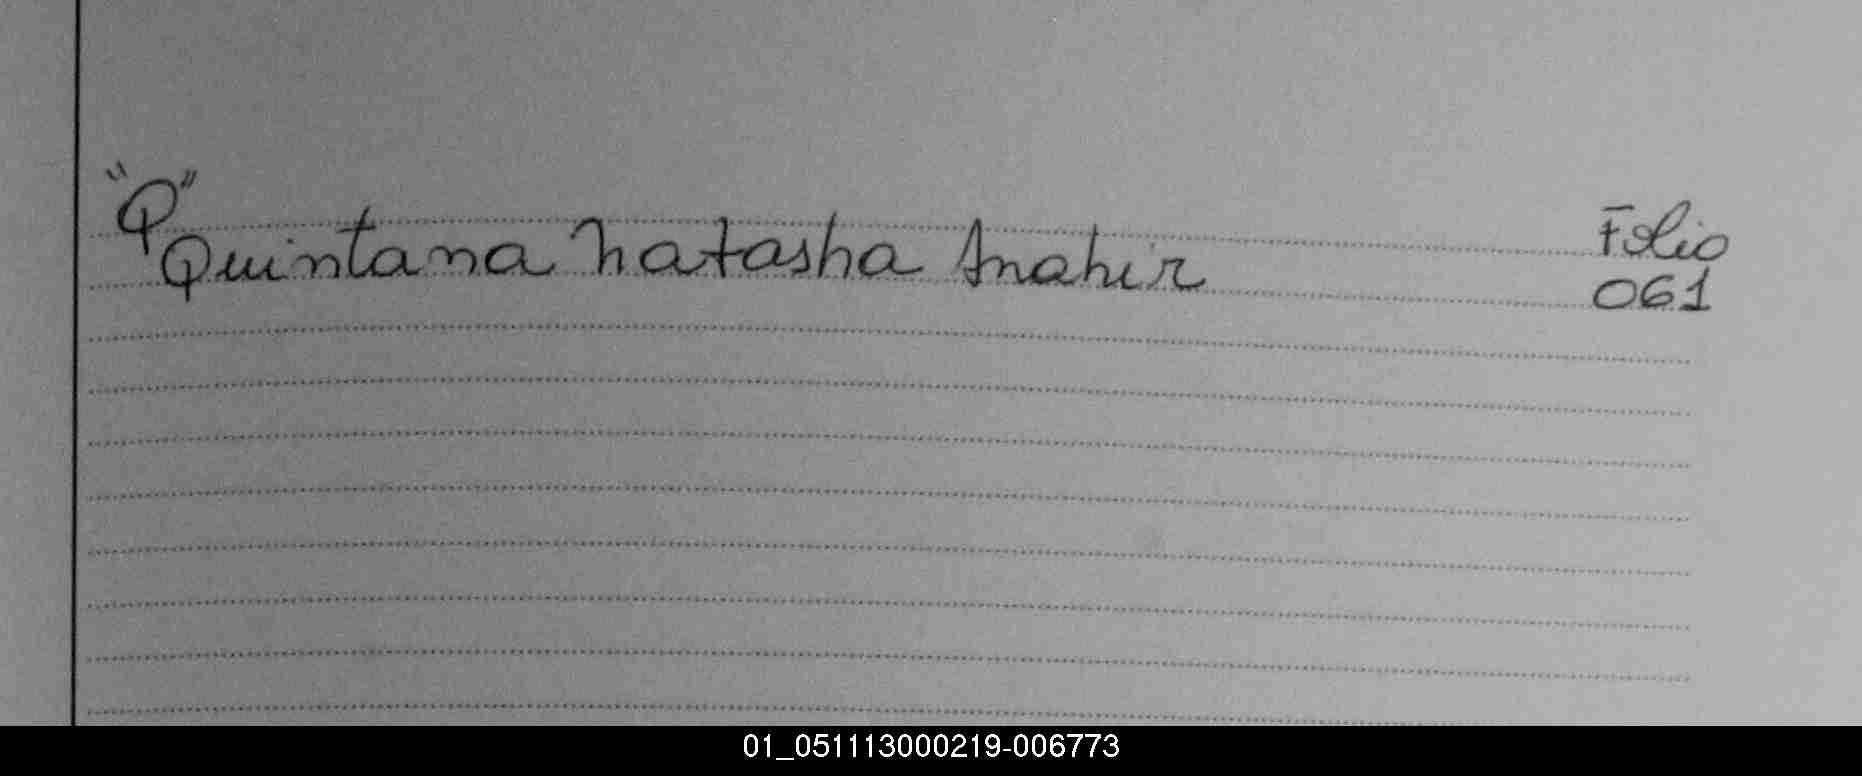 "Q"
Quintana Natasha Anahir
Folio
061
01_051113000219-006773